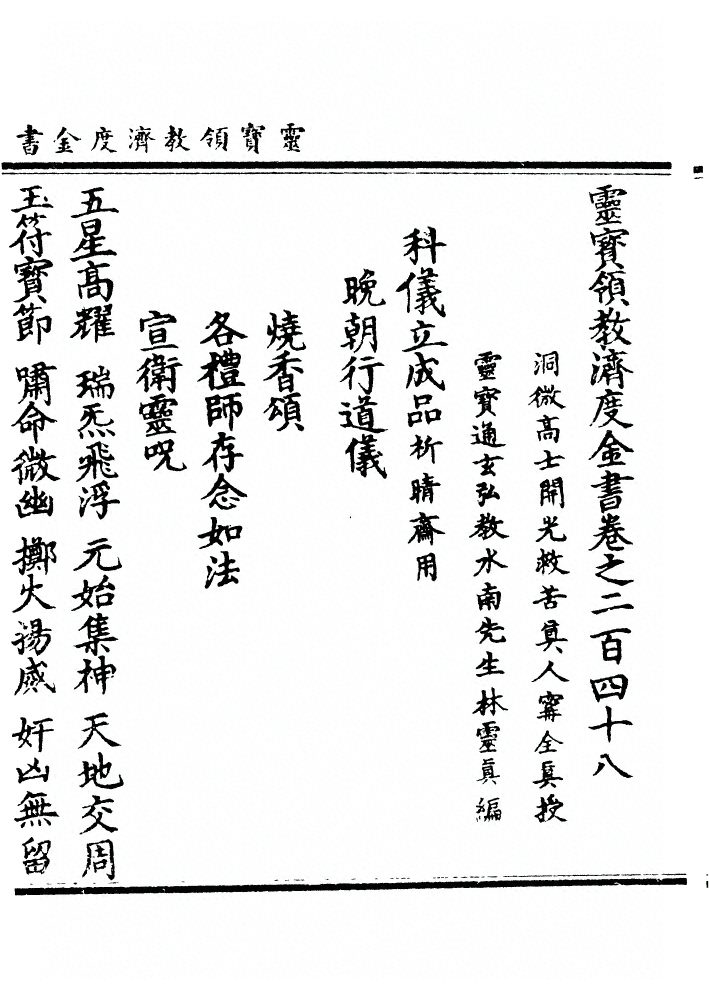 靈寶領教濟度金書
靈寶領教濟度金書卷之二百四十八
洞微高士開光救苦真人甯全真授
靈寶通玄弘教水南先生林靈真編
科儀立成品祈晴齋用
晚朝行道儀
燒香頌
各禮師存念如法
宣衛靈呪
五星高耀 瑞炁飛浮 元始集神 天地交周
玉符寶節 嘯命微幽 擲火揚威 奸凶無留